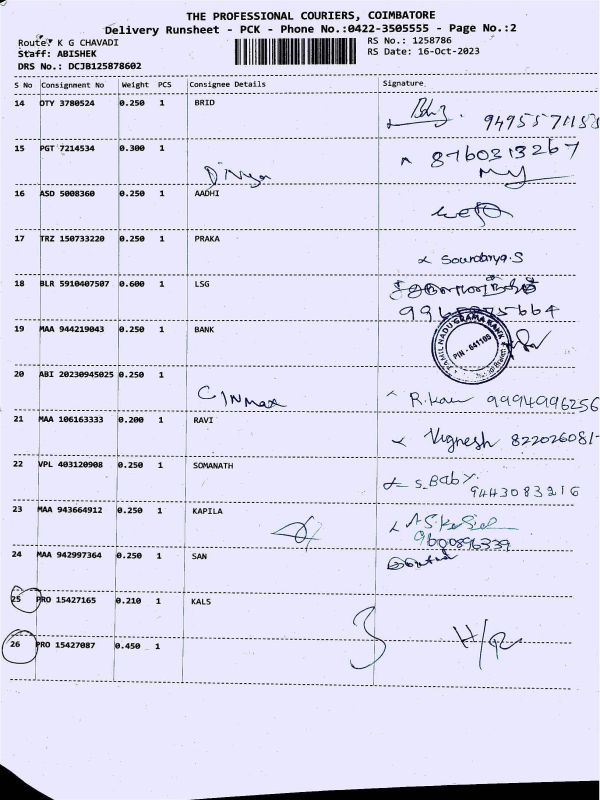 THE PROFESSIONAL COURIERS, COIMBATORE
Delivery Runsheet - PCK - Phone No.:0422-3505555 - Page No.:2
Route: K G CHAVADI
RS No.: 1258786
Staff: ABISHEK
RS Date: 16-Oct-2023
DRS No.: DCJB125878602
S No Consignment No Weight PCS Consignee Details Signature
14 DTY 3780524 0.250 1 BRID
15 PGT 7214534 0.300 1 8760313267
Divya
16 ASD 5008360 0.250 1 AADHI
17 TRZ 150733220 0.250 1 PRAKA
Soundarya.S
18 BLR 5910407507 0.600 1 LSG
19 MAA 944219043 0.250 1 BANK
TAMIL NADU GRAMA BANK
PIN - 641105
20 ABI 20230945025 0.250 1
CINMAX 9994996256
21 MAA 106163333 0.200 1 RAVI
Vignesh 822026081
22 VPL 403120908 0.250 1 SOMANATH
S. Baby
9443083216
23 MAA 943664912 0.250 1 KAPILA
9600896339
24 MAA 942997364 0.250 1 SAN
25 PRO 15427165 0.210 1 KALS
26 PRO 15427087 0.450 1